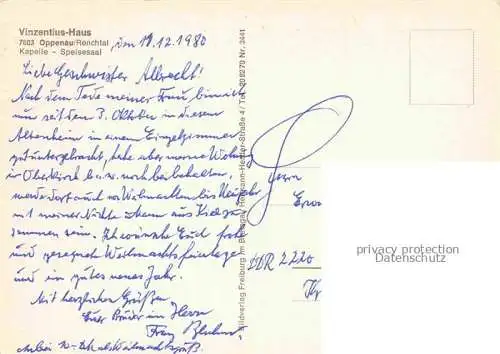 Vinzentius-Haus
7603 Oppenau/Renchtal
Kapelle - Speisesaal
den 19.12.1980
Liebe Geschwister Albrecht!
Nach dem Tode meiner Frau bin ich
nun seit dem 3. Oktober in diesem
Altenheim in einem Einzelzimmer
gut untergebracht, habe aber meine Wohnung
in Oberkirch noch beibehalten,
werde dort auch von Weihnachten bis Neujahr
mit meiner Nichte aus
sammen sein. Ich wünsche Euch frohe
und gesegnete Weihnachtsfeiertage
und ein gutes neues Jahr.
Mit herzlichen Grüßen
Euer Bruder im Herrn
Franz
Bildverlag Freiburg im Breisgau, Hermann-Herder-Straße 4 / Tel. 208270 Nr. 3441
Herrn
DDR 2220
privacy protection
Datenschutz